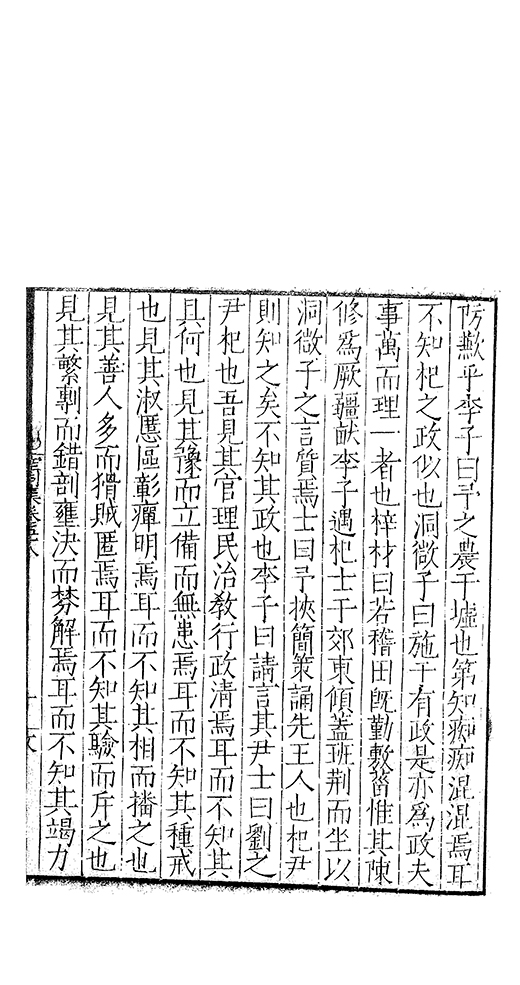 厉歟乎李子曰予之農于墟也第知痴痴混混焉耳
不知杞之政似也洞微子曰施于有政是亦為政夫
事萬而理一者也梓材曰若稽田既勤敷菑惟其陳
修爲厥疆畎李子遇杞士于郊東傾蓋班荆而坐以
洞微子之言質焉士曰予挾簡策誦先王人也杞尹
則知之矣不知其政也李子曰請言其尹士曰劉之
尹杞也吾見其官理民治敎行政清焉耳而不知其
具何也見其豫而立備而無患焉耳而不知其種戒
也見其淑慝區彰癉明焉耳而不知其相而播之也
見其善人多而猾賊匿焉耳而不知其驗而斥之也
見其繁剸而錯剖壅決而棼解焉耳而不知其竭力